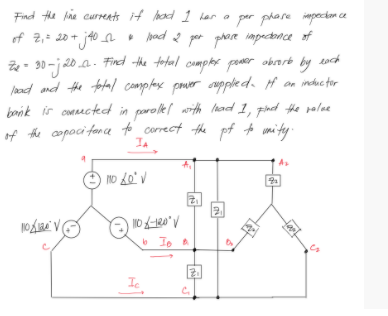 Find the line currents if load 1 has a per phase impedance
of Z₁ = 20 + j40 Ω & load 2 per phase impedance of
Z₂ = 30 - j20 Ω. Find the total complex power absorb by each
load and the total complex power supplied. If an inductor
bank is connected in parallel with load 1, find the value
of the capacitance to correct the pf to unity.
I_A
a
A₁
A₂
110 ∠0° V
Z₂
Z₁
Z₁
110 ∠120° V
110 ∠-120° V
Z₂
Z₂
c
b
I_B
B₁
B₂
C₂
Z₁
I_C
C₁